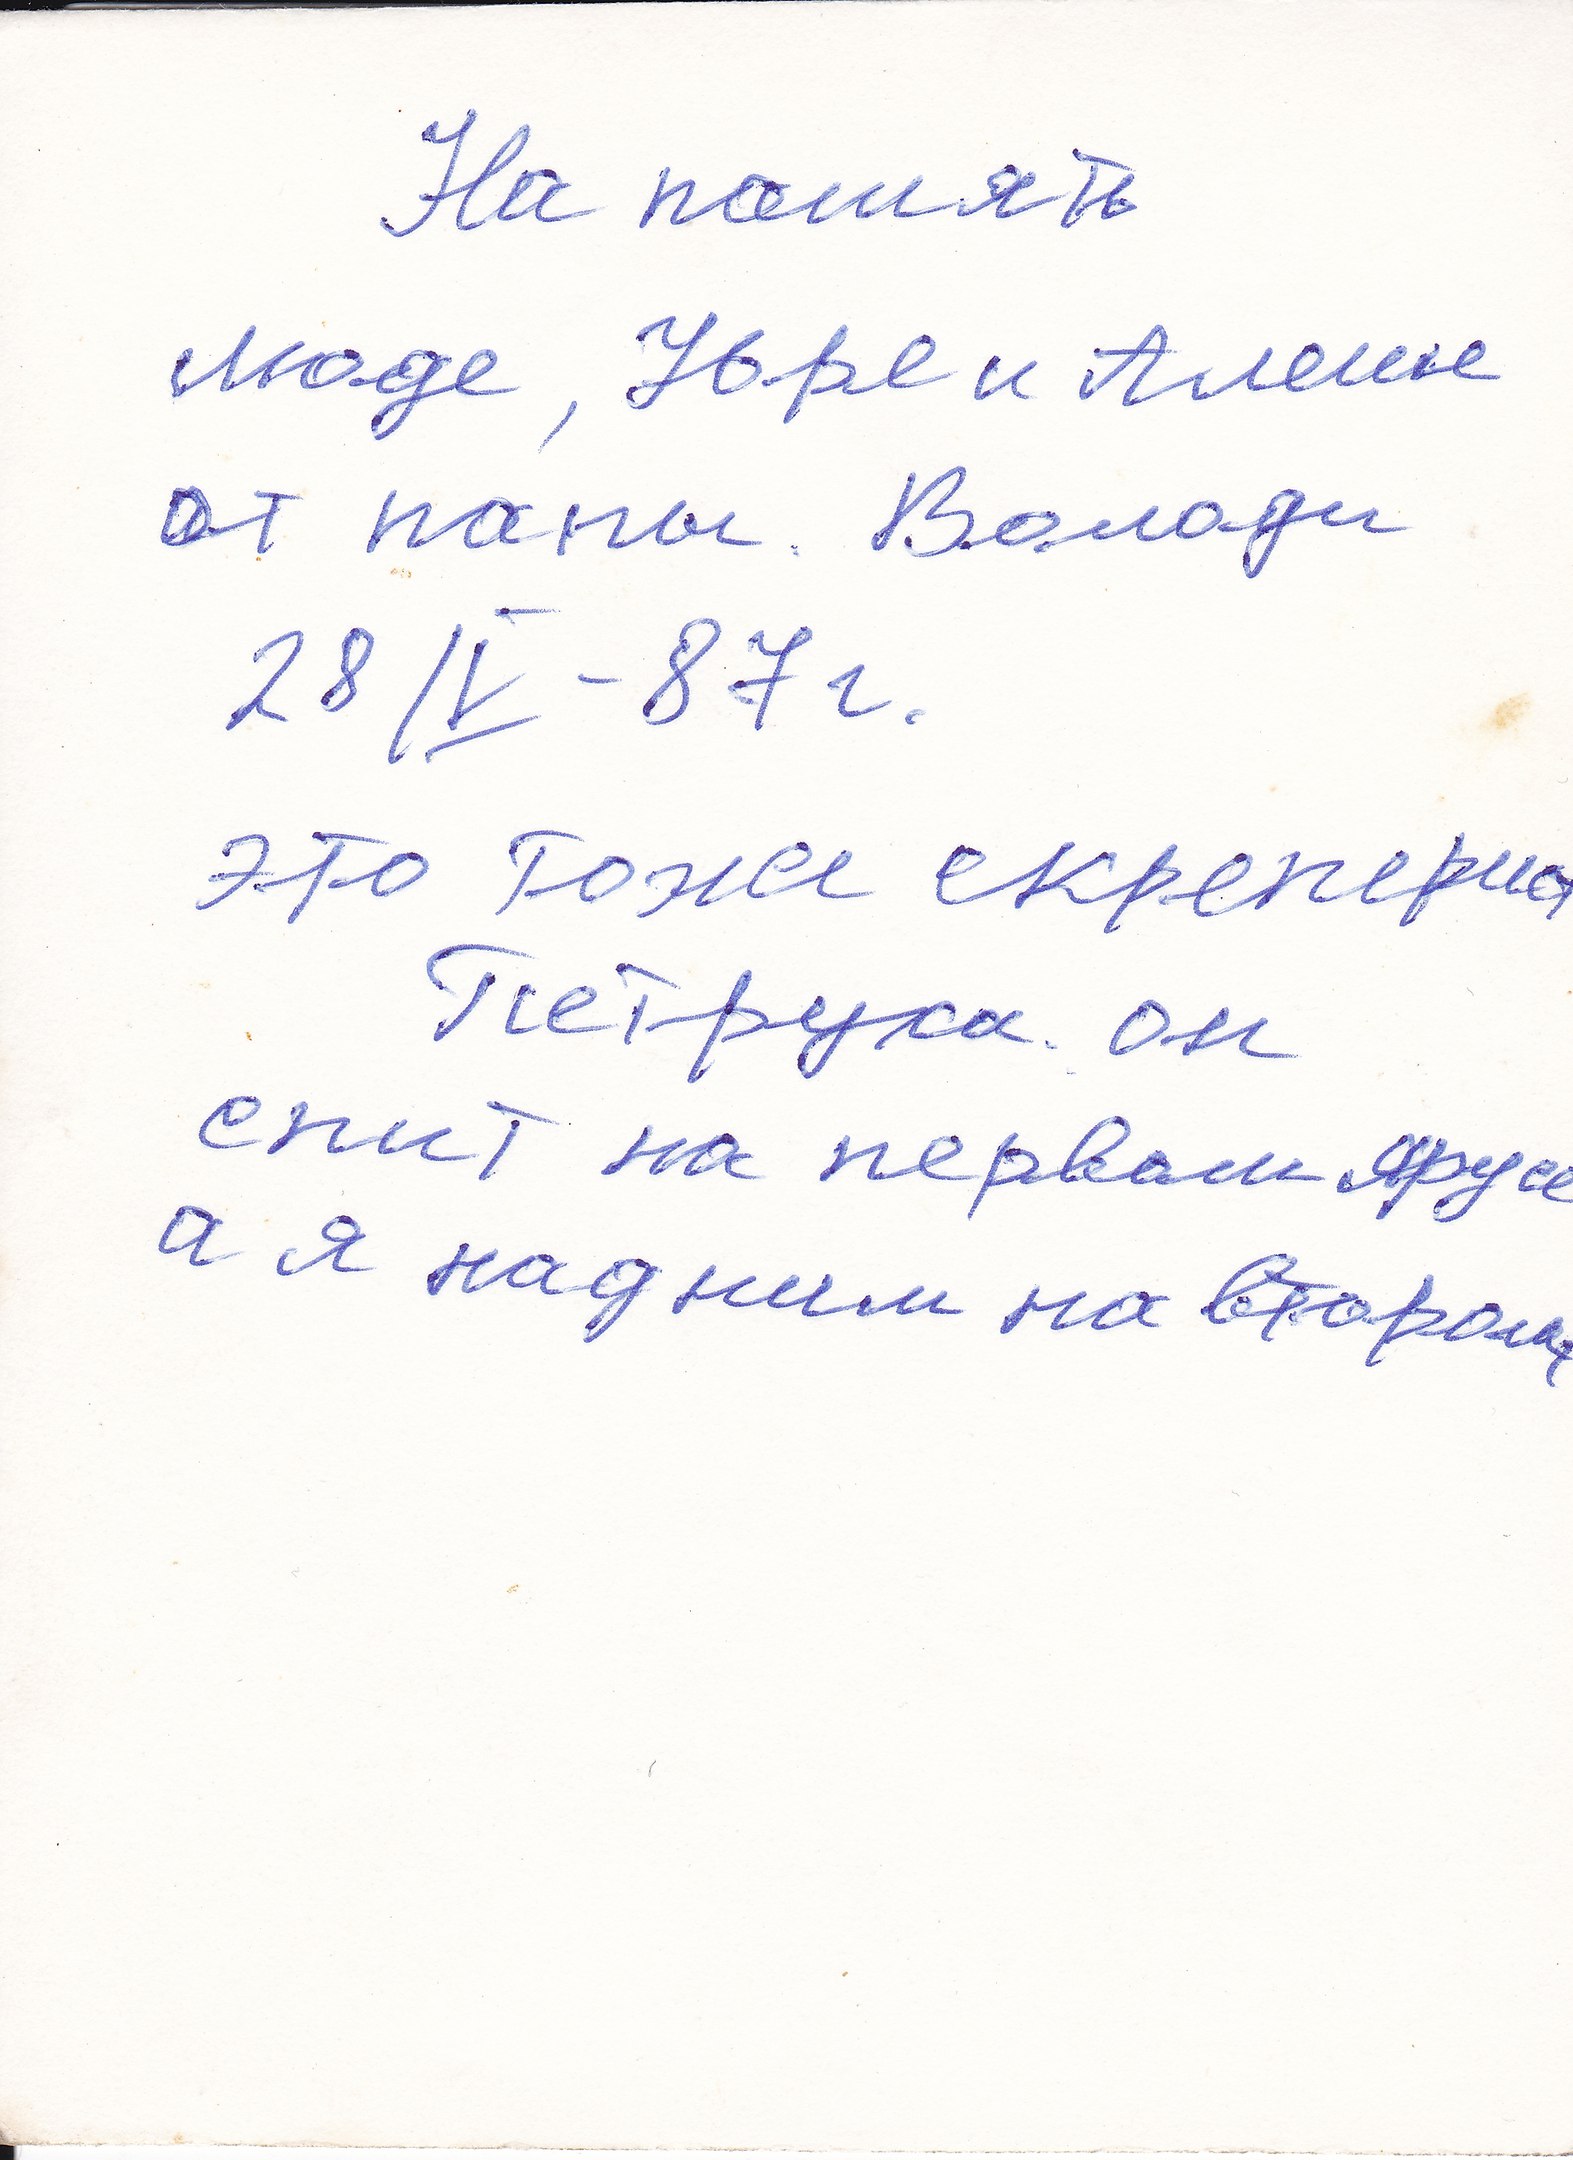 На память
Люде, Юре и Алене
от папы. Володи
28/V - 87 г.
это тоже скреперист
Петруха. он
спит на первом ярусе
а я над ним на втором